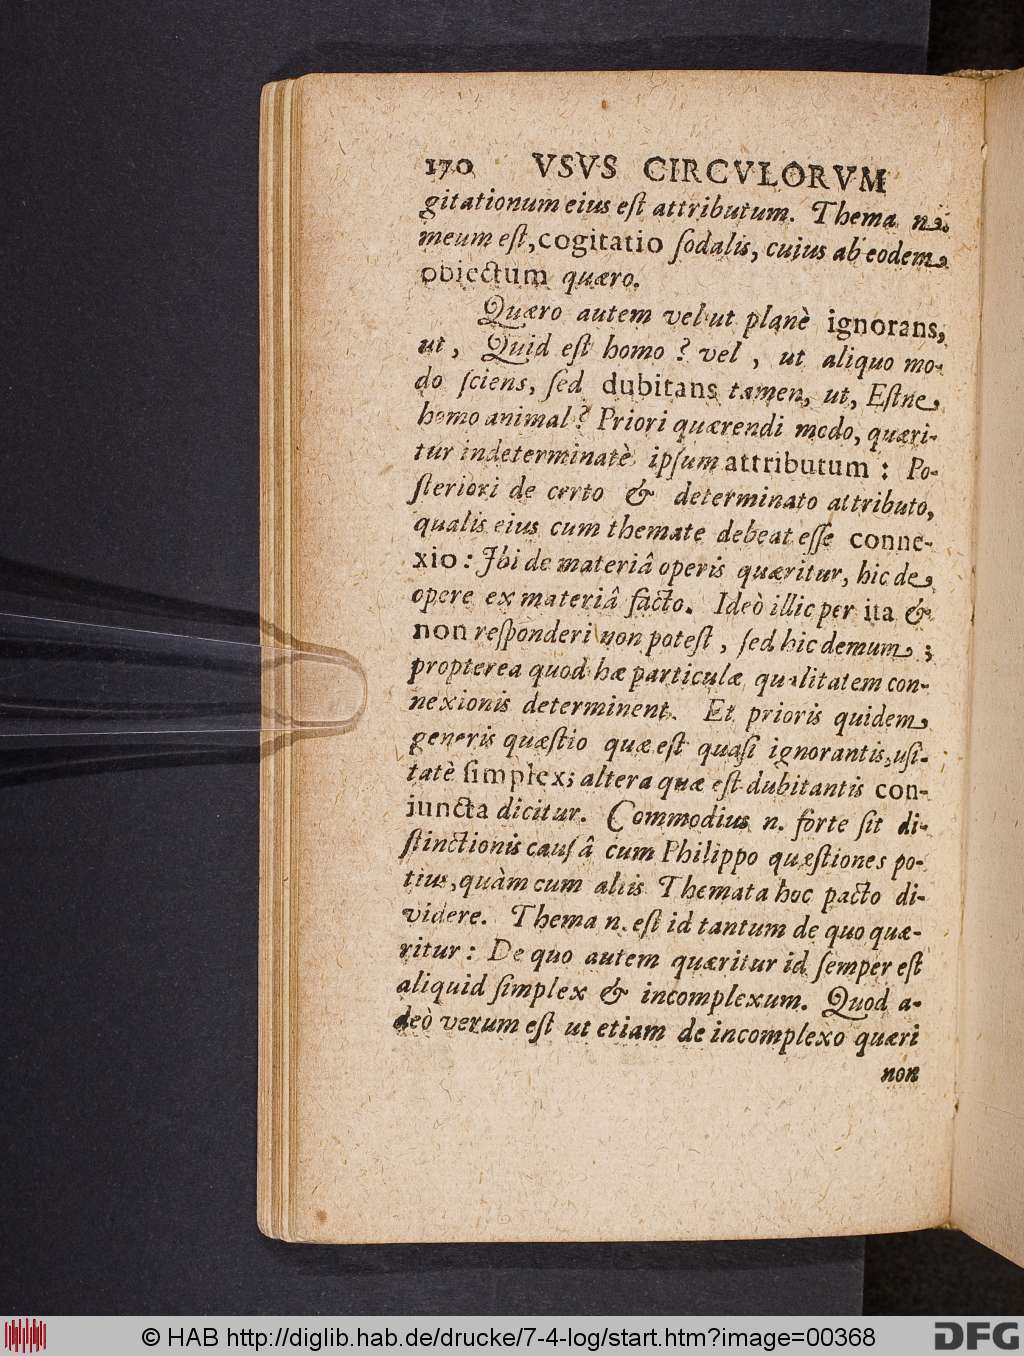 170 VSVS CIRCVLORVM
gitationum eius eſt attributum. Thema n.
meum eſt, cogitatio ſodalis, cuius ab eodem
obiectum quæro.
Quæro autem vel ut planè ignorans,
ut, Quid eſt homo? vel, ut aliquo mo-
do ſciens, ſed dubitans tamen, ut, Eſtne
homo animal? Priori quærendi modo, quæri-
tur indeterminatè ipſum attributum: Po-
ſteriori de certo & determinato attributo,
qualis eius cum themate debeat eſſe conne-
xio: Ibi de materiâ operis quæritur, hic de
opere ex materiâ facto. Ideò illic per ita &
non reſponderi non poteſt, ſed hic demum;
propterea quod hæ particulæ qualitatem con-
nexionis determinent. Et prioris quidem
generis quæſtio quæ eſt quaſi ignorantis, uſi-
tatè ſimplex; altera quæ eſt dubitantis con-
juncta dicitur. Commodius n. forte ſit di-
ſtinctionis cauſâ cum Philippo quæſtiones po-
tius, quàm cum aliis Themata hoc pacto di-
videre. Thema n. eſt id tantum de quo quæ-
ritur: De quo autem quæritur id ſemper eſt
aliquid ſimplex & incomplexum. Quod a-
deò verum eſt ut etiam de incomplexo quæri
non
© HAB http://diglib.hab.de/drucke/7-4-log/start.htm?image=00368
DFG